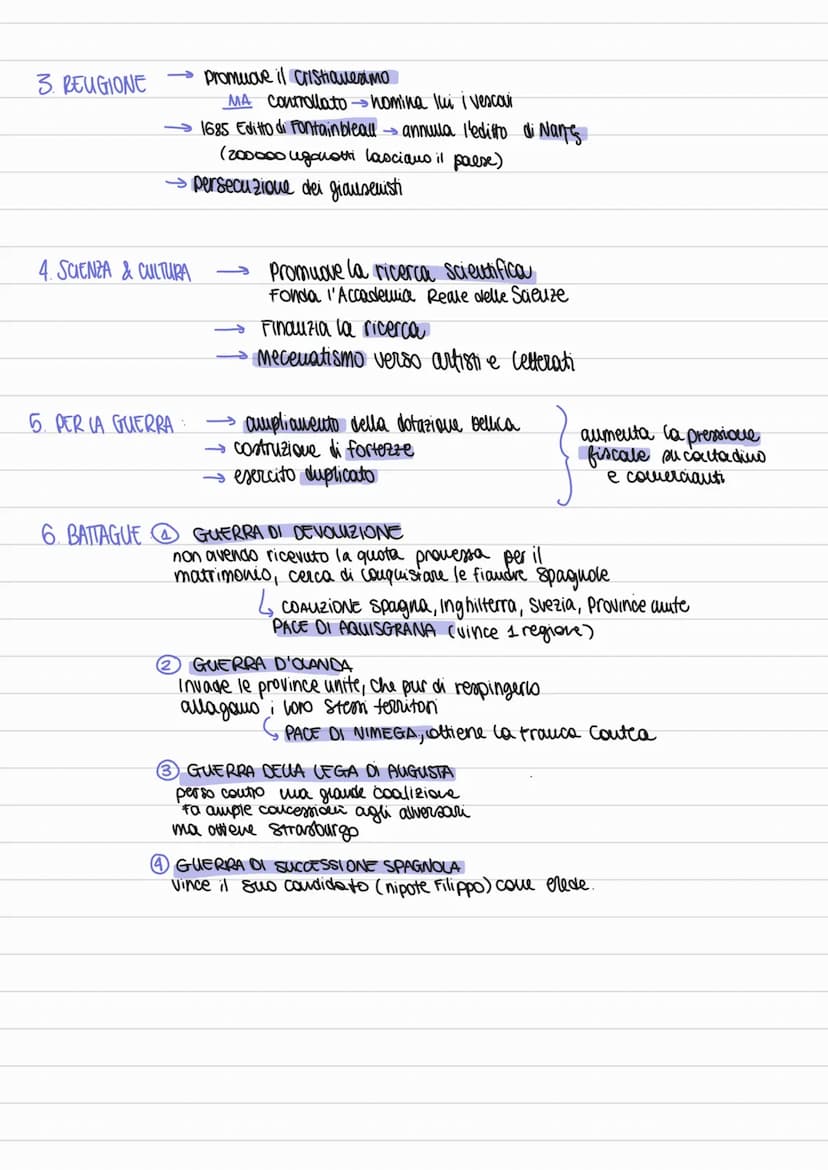 3. RELIGIONE → promuove il cristianesimo
MA controllato → nomina lui i vescovi
→ 1685 Editto di Fontainbleau → annulla l'editto di Nantes
(200000 ugonotti lasciano il paese)
→ persecuzione dei giansenisti
4. SCIENZA & CULTURA → Promuove la ricerca scientifica
Fonda l'Accademia Reale delle Scienze
→ Finanzia la ricerca
→ mecenatismo verso artisti e letterati
5. PER LA GUERRA: → ampliamento della dotazione bellica
→ costruzione di fortezze
→ esercito duplicato
aumenta la pressione
fiscale su contadino
e commercianti
6. BATTAGLIE ① GUERRA DI DEVOLUZIONE
non avendo ricevuto la quota promessa per il
matrimonio, cerca di conquistare le fiandre spagnole
↳ COALIZIONE spagna, Inghilterra, Svezia, Province unite
PACE DI AQUISGRANA (vince 1 regione)
② GUERRA D'OLANDA
Invade le province unite, che pur di respingerlo
allagano i loro stessi territori
↳ PACE DI NIMEGA, ottiene la franca contea
③ GUERRA DELLA LEGA DI AUGUSTA
perso contro una grande coalizione
fa ampie concessioni agli avversari
ma ottiene Strasburgo
④ GUERRA DI SUCCESSIONE SPAGNOLA
vince il suo candidato (nipote Filippo) come erede.